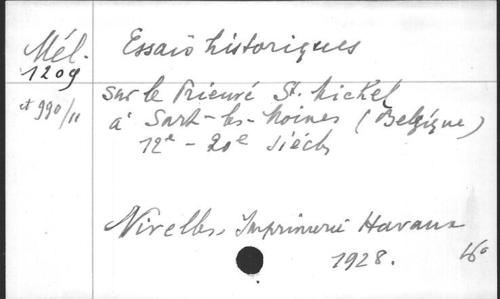 Mél.
1209
et 990/11
Essais historiques
sur le Prieuré St. Michel
à Sart-les-Moines (Belgique)
12e - 20e siècles
Nivelles, Imprimerie Havaux
1928.
16°